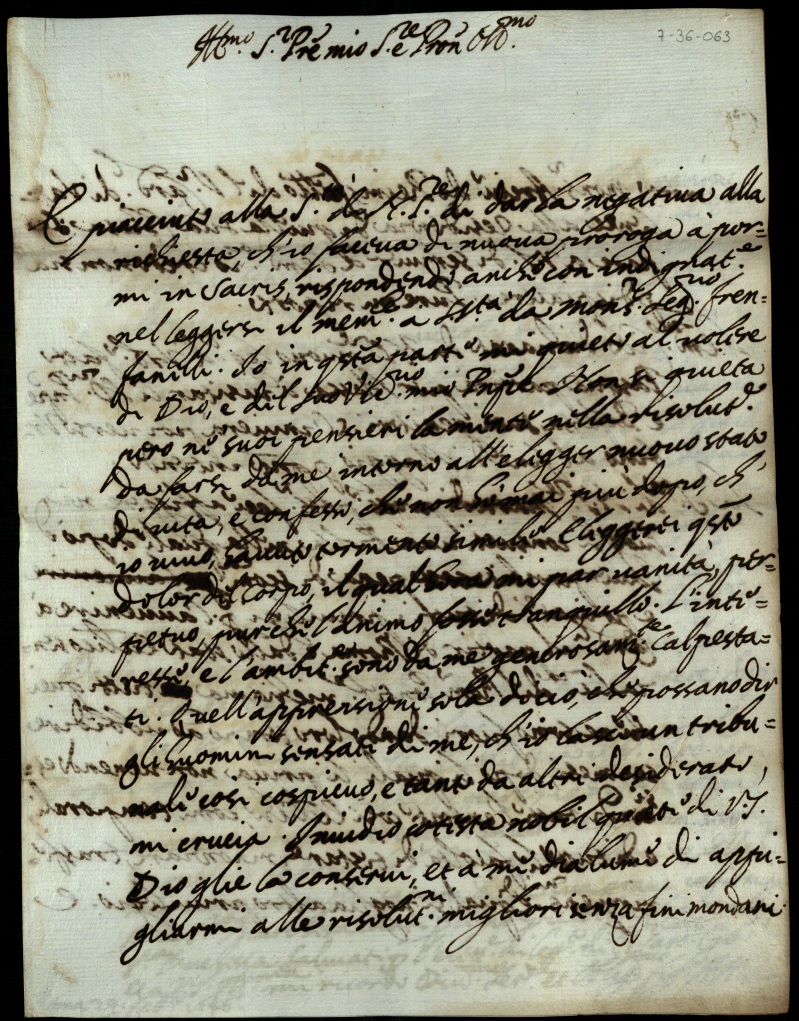 Ill.mo S.r Prẽ mio S.re e Pron Oss.mo
7-36-063
È piaciuto alla S.tà di N. S.re di dar la negativa alla
richiesta, ch'io faceva di nuova proroga à por-
mi in Sacris, rispondendo anche con indignat.e
nel leggersi il mem.le a S. S.tà da mons.r Seg.rio fran-
fanelli. Io in q̃sta parte mi quieto al volere
di Dio, e del suo Vic.rio mio Pnſ̃pe. Non si quieta
però ne' suoi pensieri la mente nella risolut.e
da farsi da me intorno all'elegger nuovo stato
di vita, e confesso, che non hò mai più dopo, ch'
io vivo, havuto tormento simile. Eleggerei q̃sto
dolor del corpo, il qual hora mi par vanità, per-
petuo, pur che l'animo fosse tranquillo. L'inte-
resse, e l'ambit.e sono da me generosam.te calpesta-
ti. Quell'apprensione sola di ciò, che possano dir
gli huomini sensati di me, ch'io lasci un tribu-
nale così cospicuo, e tanto da altri desiderato,
mi crucia. Invidio cotesta nobil quiete di V. S.
Dio glie la conservi, et à me dia lume di appi-
gliarmi alle risolut.ni migliori senza fini mondani.